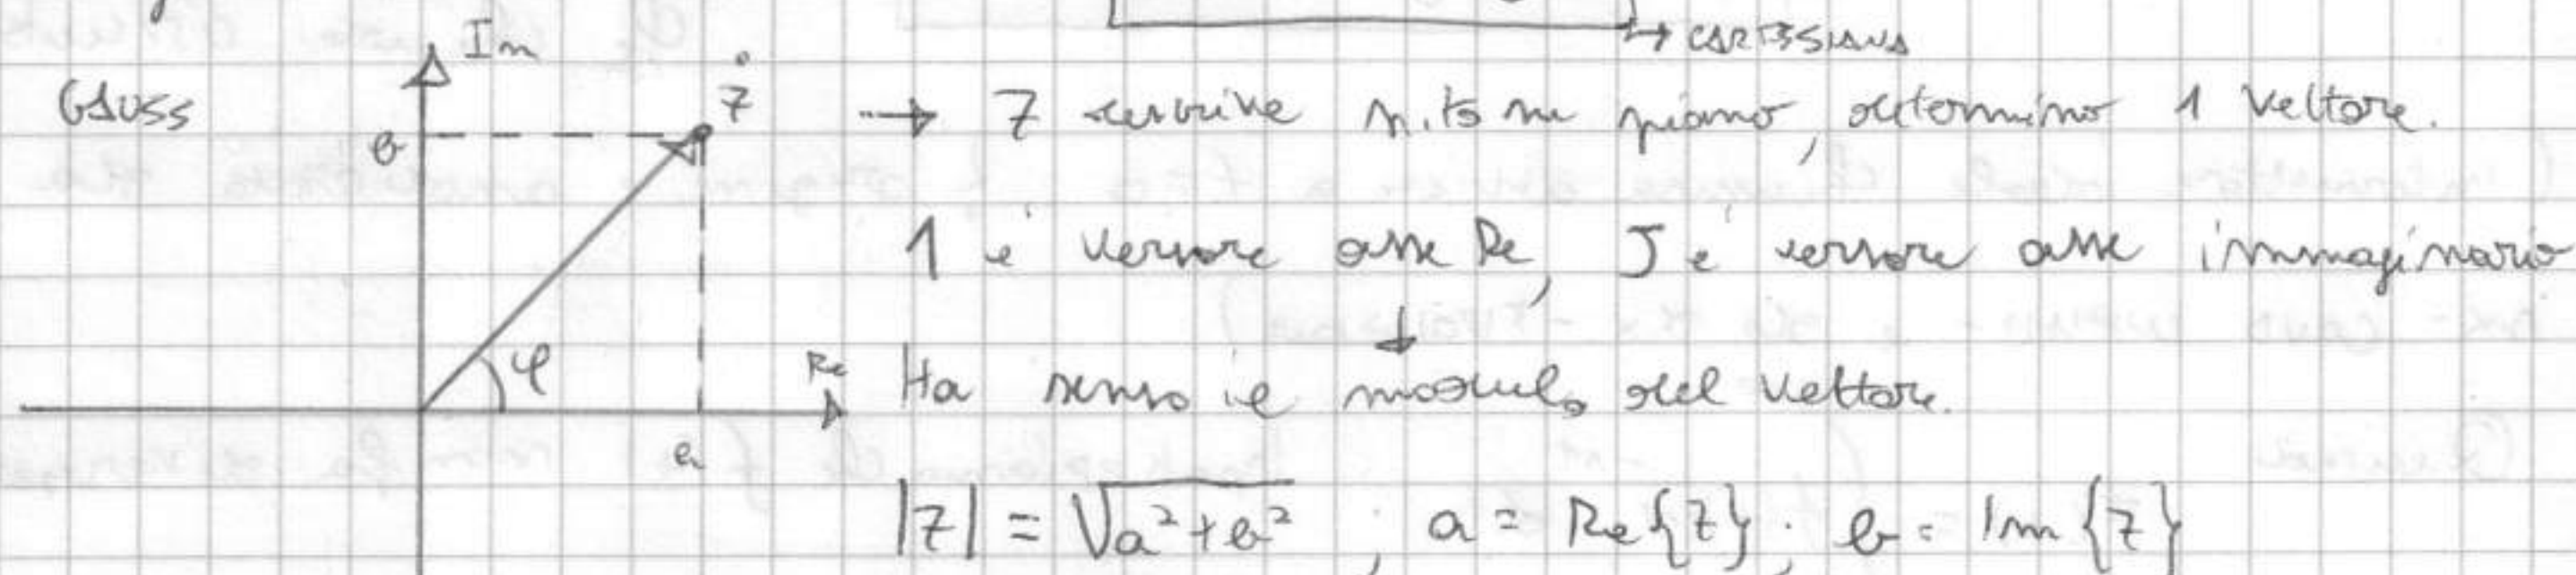 → CARTESIANA
Im
GAUSS
ż → z descrive p.to su piano, determino 1 vettore.
b
1 è versore asse Re, J è versore asse immaginario
↓
φ Re Ha senso il modulo del vettore.
a
|z| = √a²+b² ; a = Re{z} ; b = Im{z}